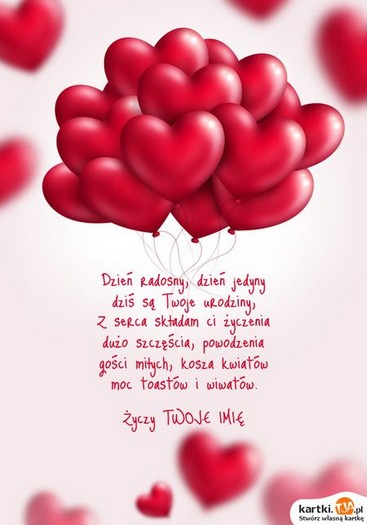 Dzień radosny, dzień jedyny
dziś są Twoje urodziny,
Z serca składam ci życzenia
dużo szczęścia, powodzenia
gości miłych, kosza kwiatów
moc toastów i wiwatów.
Życzy TWOJE IMIĘ
kartki.TJA.pl
Stwórz własną kartkę